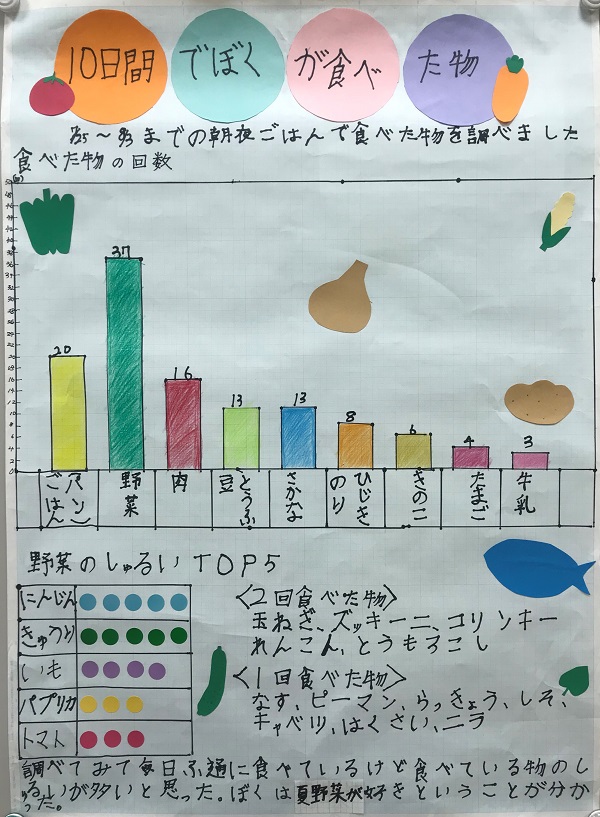 10日間でぼくが食べた物
7/25〜8/3までの朝夜ごはんで食べた物を調べました
食べた物の回数
(回)
20 37 16 13 13 8 6 4 3
ごはん(パン)
野菜
肉
豆(とうふ)
さかな
ひじきのり
きのこ
たまご
牛乳
野菜のしゅるいTOP5
にんじん
きゅうり
いも
パプリカ
トマト
〈2回食べた物〉
玉ねぎ、ズッキーニ、コリンキー
れんこん、とうもろこし
〈1回食べた物〉
なす、ピーマン、らっきょう、しそ、
キャベツ、はくさい、ニラ
調べてみて毎日ふ通に食べているけど食べている物のし
ゅるいが多いと思った。ぼくは夏野菜が好きということが分か
った。